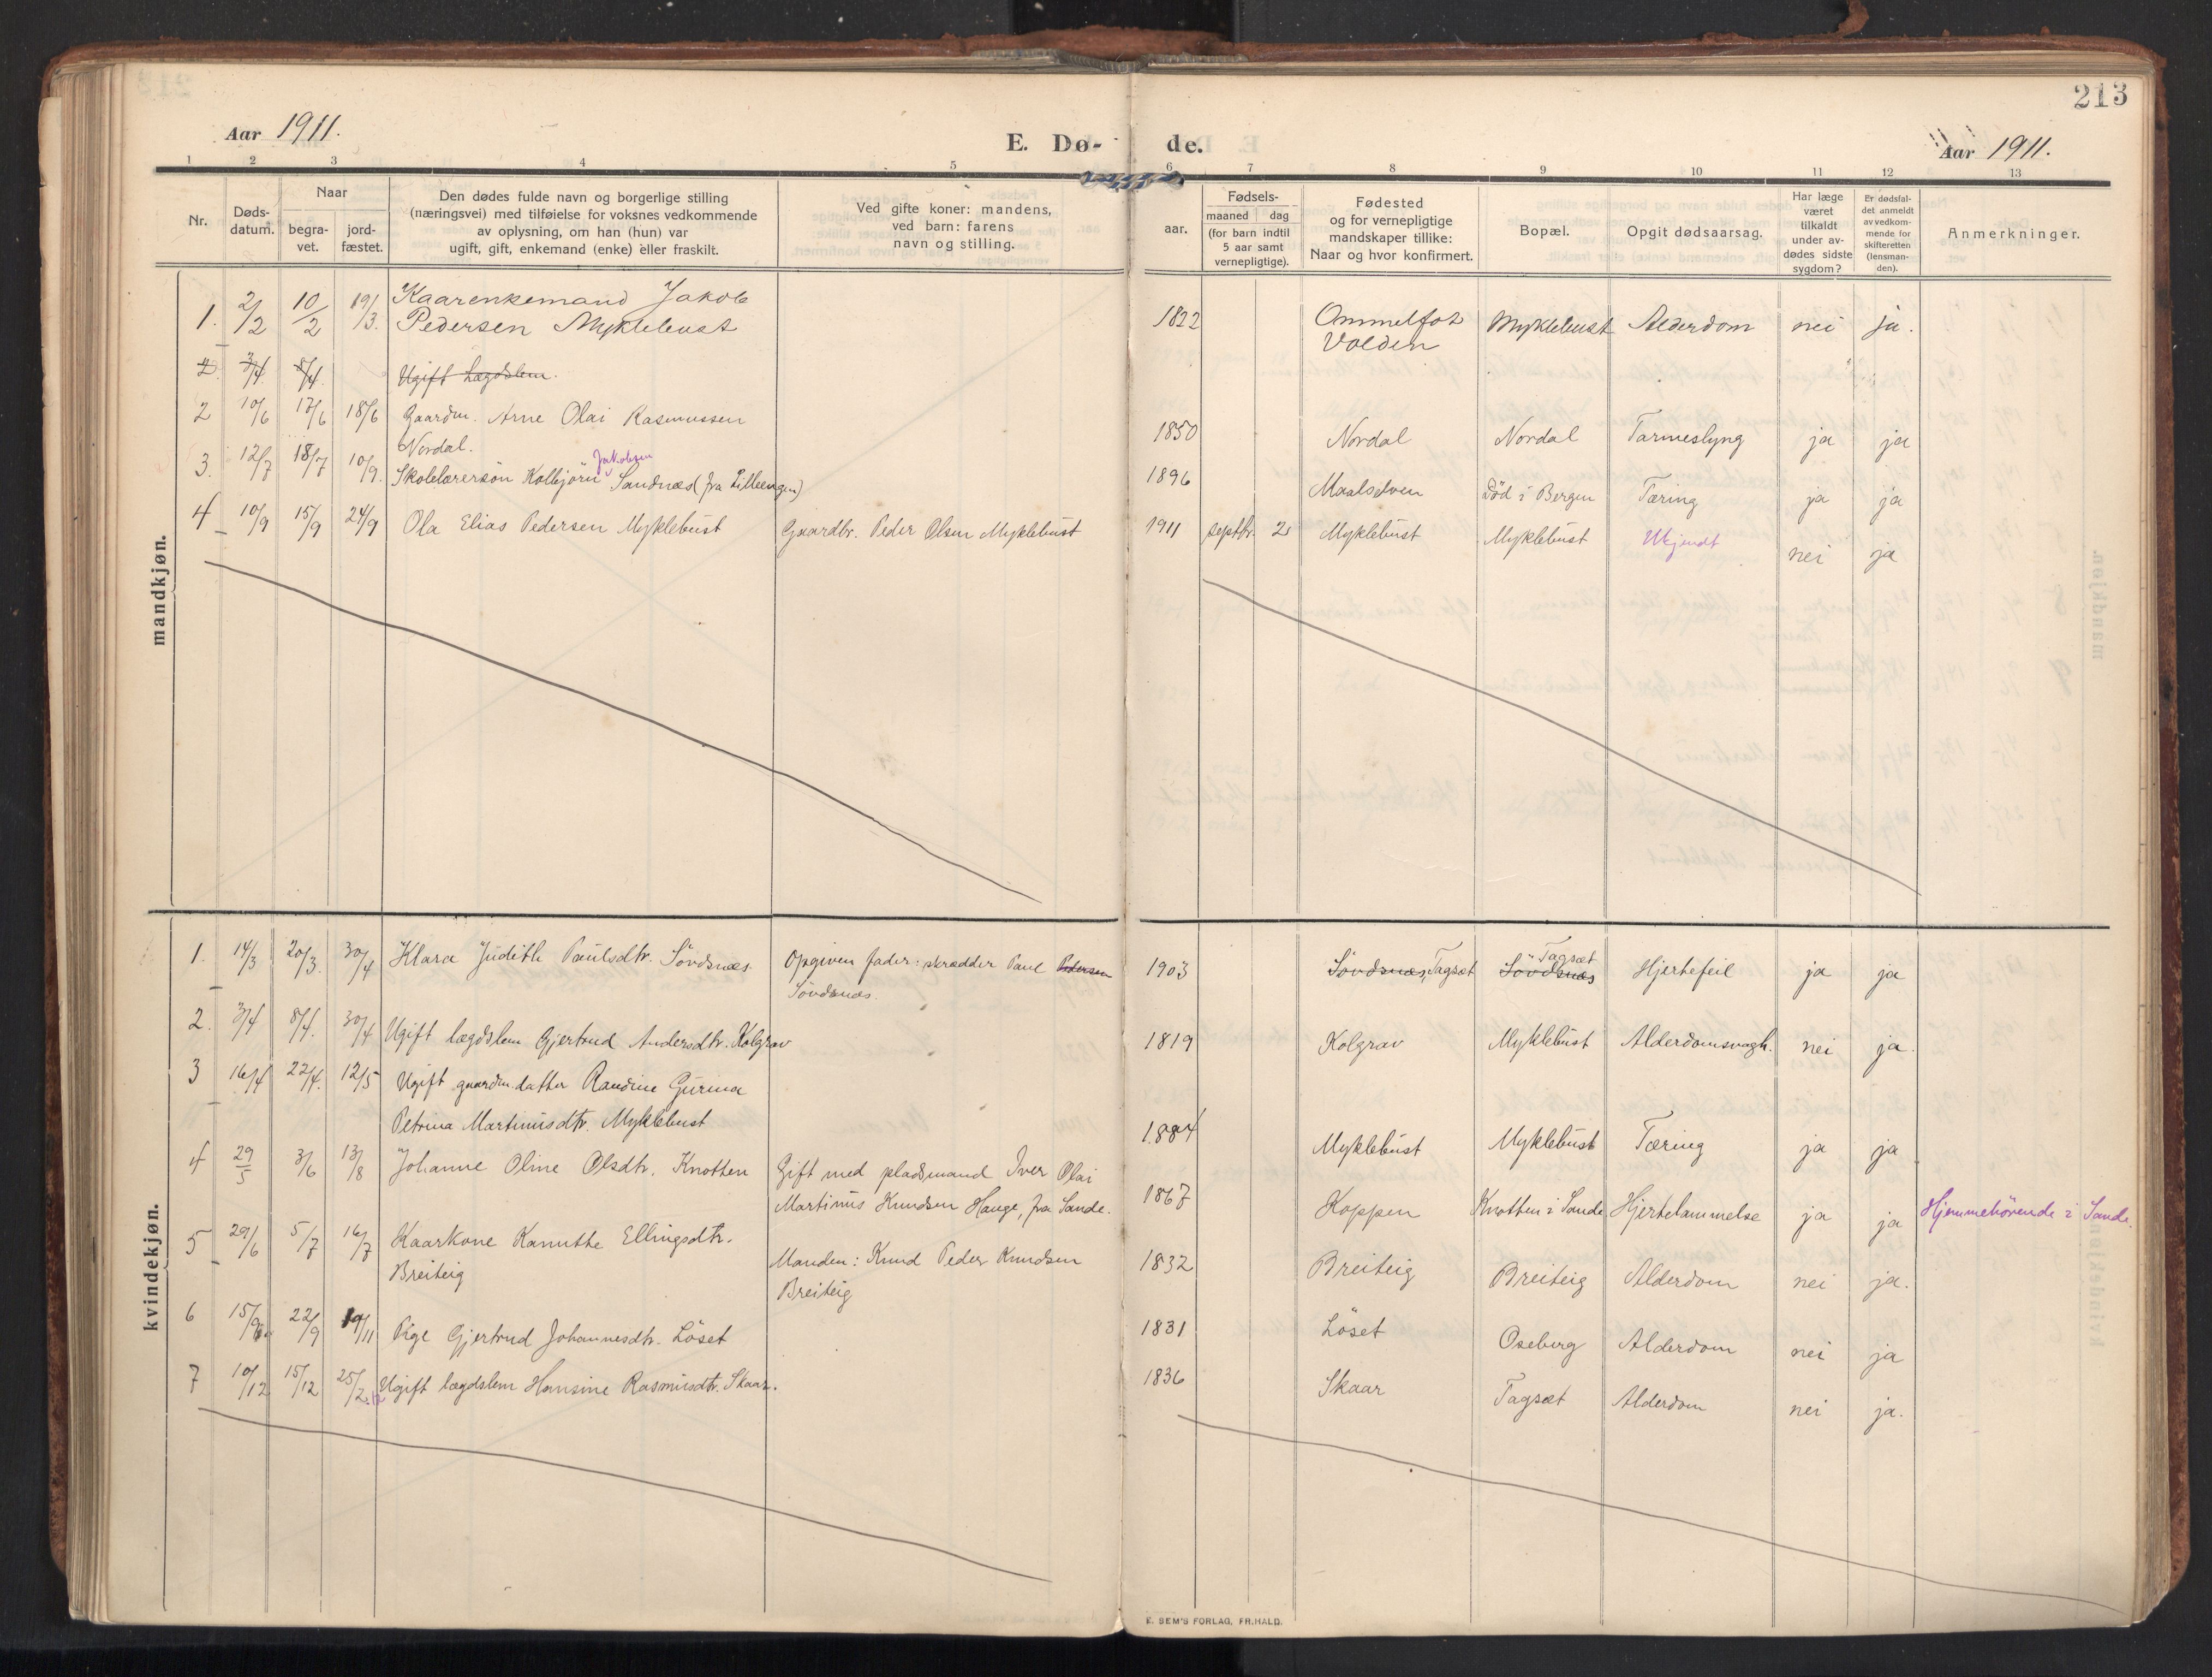 213
Aar 1911.
E. Dø- de.
Aar 1911.
1 2 3 4 5 6 7 8 9 10 11 12 13
Nr.
Døds-
datum.
Naar
begra-
vet.
jord-
fæstet.
Den dødes fulde navn og borgerlige stilling
(næringsvei) med tilføielse for voksnes vedkommende
av oplysning, om han (hun) var
ugift, gift, enkemand (enke) eller fraskilt.
Ved gifte koner: mandens,
ved barn: farens
navn og stilling.
Fødsels-
aar.
maaned dag
(for barn indtil
5 aar samt
vernepligtige).
Fødested
og for vernepligtige
mandskaper tillike:
Naar og hvor konfirmert.
Bopæl.
Opgit dødsaarsag.
Har læge
været
tilkaldt
under av-
dødes sidste
sygdom?
Er dødsfal-
det anmeldt
av vedkom-
mende for
skifteretten
(lensman-
den).
Anmerkninger.
mandkjøn.
1. 2/2 10/2 19/3. Kaarenkemand Jakob
Pedersen Myklebust 1822 Ommelfot
Volden Myklebust Alderdom nei ja.
2. 3/4. 8/4. Ugift Lægdslem.
2 10/6 17/6 18/6 Gaardm. Arne Olai Rasmussen
Nordal. 1850 Nordal Nordal Tarmeslyng ja ja
3. 12/7 18/7 10/9. Skolelærersön Kolbjörn Jakobsen Sandnæs (fra Lilleengen) 1896 Maalselven Död i Bergen Tæring ja ja
4 10/9 15/9 24/9 Ola Elias Pedersen Myklebust Gaardbr. Peder Olsen Myklebust 1911 septbr. 2 Myklebust Myklebust Ukjendt nei ja
kvindekjøn.
1. 14/3 20/3. 30/4 Klara Judith Paulsdtr. Sövdsnæs Opgiven fader: skrædder Paul Pedersen
Sövdsnæs. 1903 Sövdsnæs, Tagsæt Tagsæt
Sövdsnæs Hjertefeil ja ja
2. 3/4 8/4. 30/4 Ugift lægdslem Gjertrud Andersdtr. Kolgrav 1819 Kolgrav Myklebust Alderdomsvagh. nei ja.
3 16/4 22/4. 12/5 Ugift gaardm.datter Randine Gurina
Petrina Martinusdtr. Myklebust 1884 Myklebust Myklebust Tæring ja ja
4 29/5 3/6 13/8 Johanne Oline Olsdtr. Knotten Gift med pladsmand Iver Olai
Martinus Knudsen Hauge, fra Sande. 1867 Koppen Knotten i Sande Hjertelammelse ja ja Hjemmehörende i Sande.
5 29/6 5/7 16/7 Kaarkone Kanutthe Ellingsdtr.
Breiteig Manden: Knud Peder Knudsen
Breiteig 1832 Breiteig Breiteig Alderdom nei ja.
6 15/9 22/9 19/11 Pige Gjertrud Johannesdtr. Löset 1831 Löset Oseberg Alderdom nei ja
7 10/12 15/12 25/2.12 Ugift lægdslem Hansine Rasmusdtr. Skaar. 1836 Skaar Tagsæt Alderdom nei ja.
E. SEM'S FORLAG, FR.HALD.